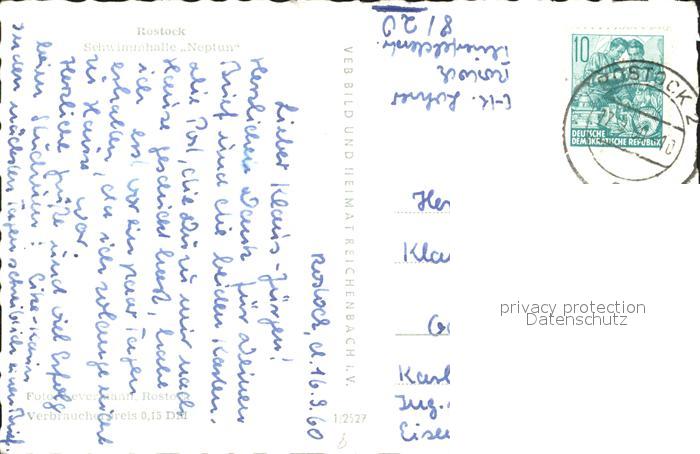 Rostock
Schwimmhalle „Neptun"
Rostock, d. 16.9.60
Lieber Klaus-Jürgen!
Herzlichen Dank für Deinen
Brief und die beiden Karten.
die Post, die Du mir nach
Hause geschickt hast, habe
ich erst vor ein paar Tagen
erhalten, da ich solange nicht
zu Hause war.
Herzliche Grüße und viel Erfolg
beim Studium!
In den nächsten Tagen schreibe ich einen Brief.
Verbraucherpreis 0,15 DM
1:2527
VEB BILD UND HEIMAT REICHENBACH I. V.
Rostock
8/20
10
DEUTSCHE
DEMOKRATISCHE REPUBLIK
ROSTOCK 2
Her
Kla
Karl
Ing.
Eise
privacy protection
Datenschutz